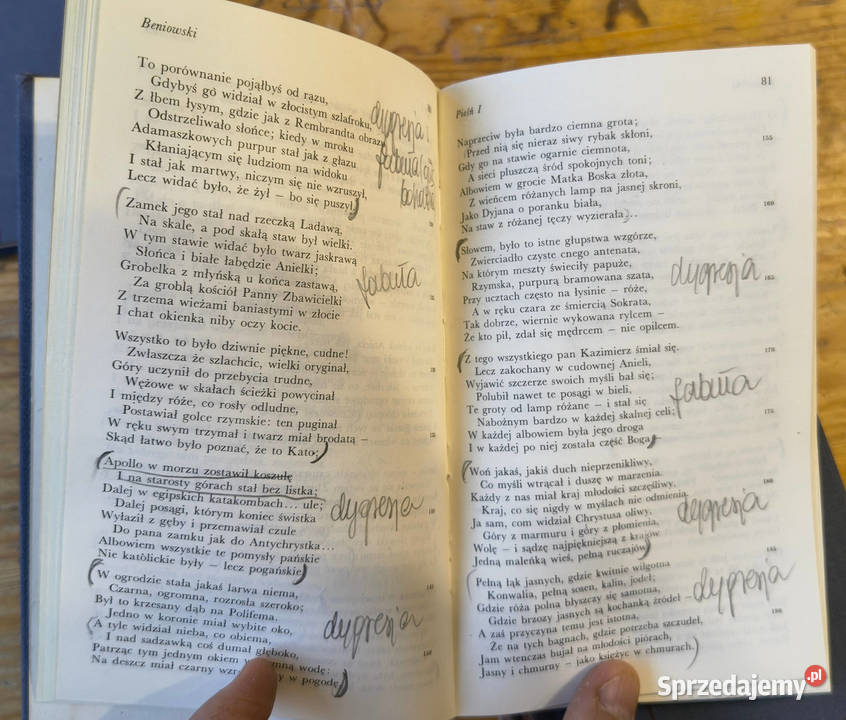 Beniowski
To porównanie pojąłbyś od razu,
Gdybyś go widział w złocistym szlafroku,
Z łbem łysym, gdzie jak z Rembrandta obrazu
Odstrzeliwało słońce; kiedy w mroku
Adamaszkowych purpur stał jak z głazu
Kłaniającym się ludziom na widoku
I stał jak martwy, niczym się nie wzruszył,
Lecz widać było, że żył – bo się puszył.
dygresja i
fabuła
Zamek jego stał nad rzeczką Ladawą,
Na skale, a pod skałą staw był wielki.
W tym stawie widać było twarz jaskrawą
Słońca i białe łabędzie Anielki;
Grobelka z młynską u końca zastawą,
Za groblą kościół Panny Zbawicielki
Z trzema wieżami baniastymi w złocie
I chat okienka niby oczy kocie.
fabuła
Wszystko to było dziwnie piękne, cudne!
Zwłaszcza że szlachcic, wielki oryginał,
Góry uczynił do przebycia trudne,
Wężowe w skałach ścieżki powycinał
I między róże, co rosły odludne,
Postawiał golce rzymskie: ten puginał
W ręku swym trzymał i twarz miał brodatą –
Skąd łatwo było poznać, że to Kato;
Apollo w morzu zostawił koszulę
I na starosty górach stał bez listka;
Dalej w egipskich katakombach... ule;
Dalej posągi, którym koniec świstka
Wyłaził z gęby i przemawiał czule
Do pana zamku jak do Antychrystka...
Albowiem wszystkie te pomysły pańskie
Nie katolickie były – lecz pogańskie.
dygresja
W ogrodzie stała jakaś larwa niema,
Czarna, ogromna, rozrosła szeroko;
Był to krzesany dąb na Polifema,
Jedno w koronie miał wybite oko,
A tyle widział nieba, co obiema,
I nad sadzawką coś dumał głęboko,
Patrząc tym jednym okiem w
wodę:
Na deszcz miał czarny
w pogodę.
dygresja
Pieśń I
81
Naprzeciw była bardzo ciemna grota;
Przed nią się nieraz siwy rybak skłoni,
155
Gdy go na stawie ogarnie ciemnota,
A sieci pluszczą śród spokojnych toni;
Albowiem w grocie Matka Boska złota,
Z wieńcem różanych lamp na jasnej skroni,
Jako Dyjana o poranku biała,
160
Na staw z różanej tęczy wyzierała...
Słowem, było to istne głupstwa wzgórze,
Zwierciadło czyste cnego antenata,
Na którym meszty świeciły papuże,
Rzymska, purpurą bramowana szata,
165
Przy ucztach często na łysinie – róże,
A w ręku czara ze śmiercią Sokrata,
Tak dobrze, wiernie wykowana rylcem –
Że kto pił, zdał się mędrcem – nie opilcem.
dygresja
Z tego wszystkiego pan Kazimierz śmiał się.
170
Lecz zakochany w cudownej Anieli,
Wyjawić szczerze swoich myśli bał się;
Polubił nawet te posągi w bieli,
Te groty od lamp różane – i stał się
Nabożnym bardzo w każdej skalnej celi;
175
W każdej albowiem była jego droga
I w każdej po niej została część Boga.
fabuła
Woń jakaś, jakiś duch nieprzenikliwy,
Co myśli wtrącał i duszę w marzenia.
Każdy z nas miał kraj młodości szczęśliwy,
180
Kraj, co się nigdy w myślach nie odmienia.
Ja sam, com widział Chrystusa oliwy,
Góry z marmuru i góry z płomienia,
Wolę – i sądzę najpiękniejszą z krajów
Jedną maleńką wieś, pełną ruczajów,
dygresja
185
Pełną łąk jasnych, gdzie kwitnie wilgotna
Konwalia, pełną sosen, kalin, jodeł;
Gdzie róża polna błyszczy się samotna,
Gdzie brzozy jasnych są kochanką źródeł –
A zaś przyczyna temu jest istotna,
190
Że na tych bagnach, gdzie potrzeba szczudeł,
Jam wtenczas bujał na młodości piórach,
Jasny i chmurny – jako księżyc w chmurach.
dygresja
Sprzedajemy.pl